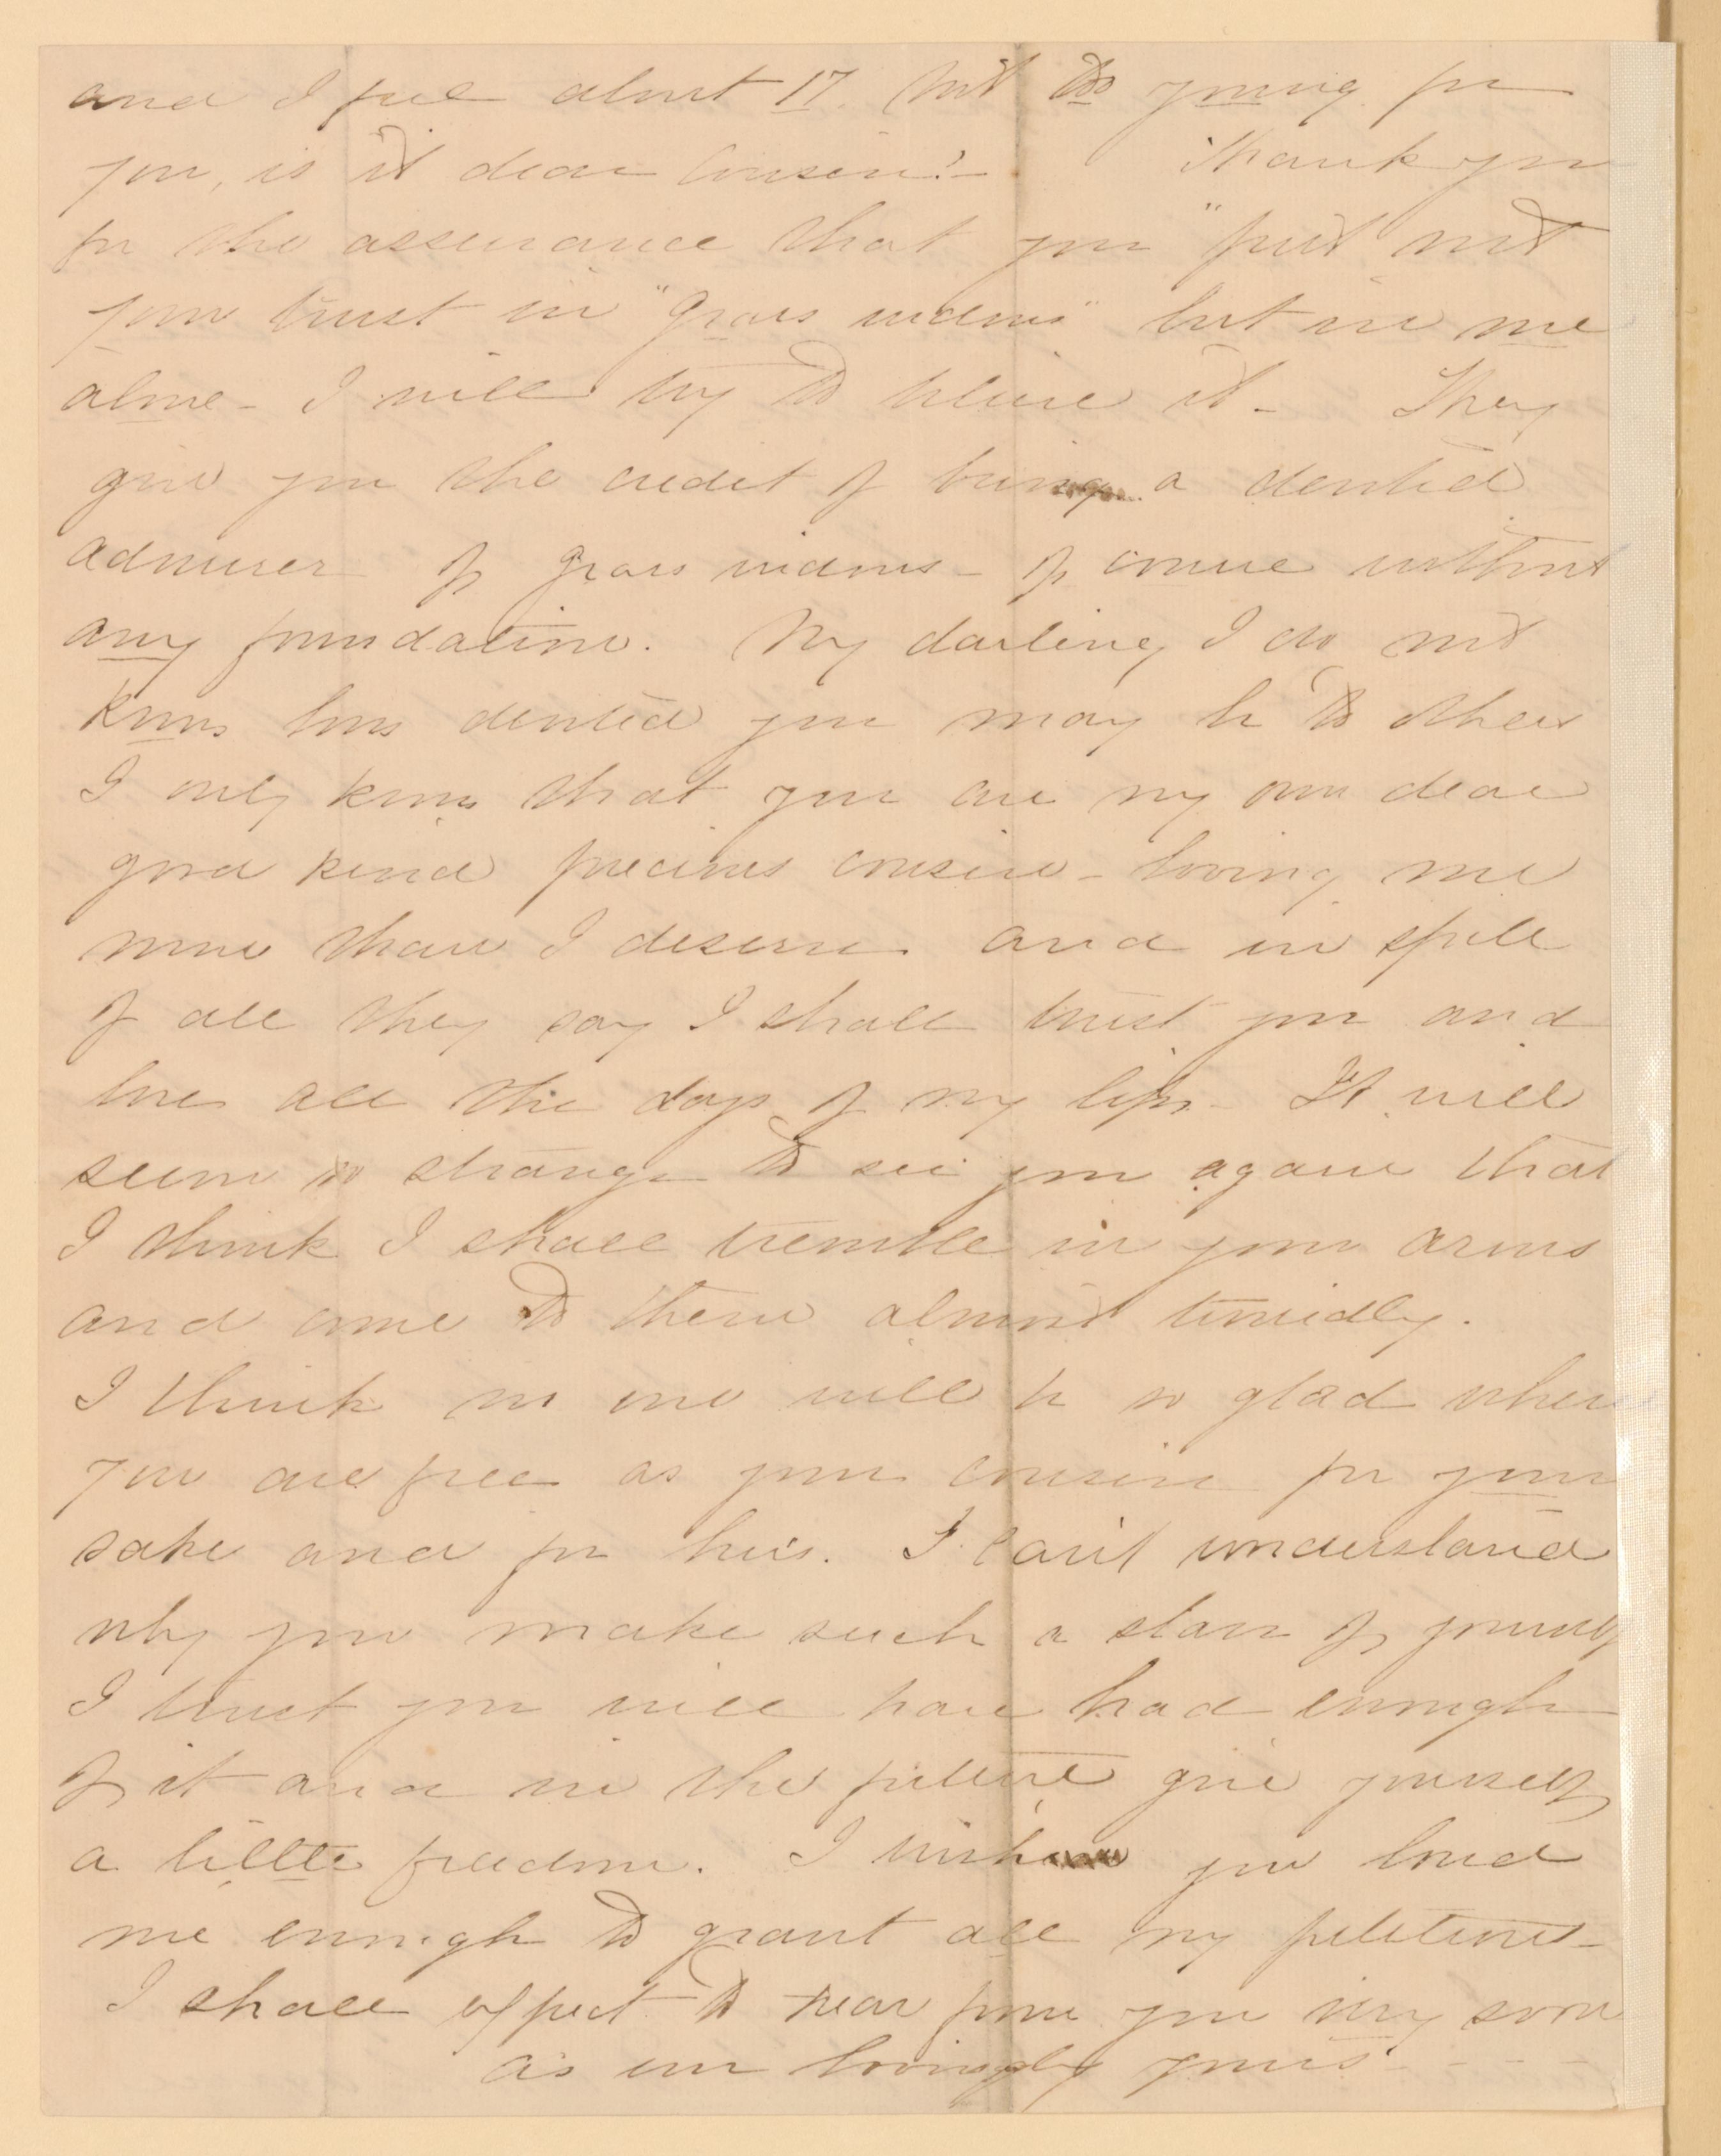 and I feel about 17. Not too young for
you, is it dear Cousin?- Thank you
for the assurance that you "put not
your trust in "Grass widows" but in me
alone- I will try to believe it- They
give you the credit of being a devoted
admirer of grass widows- of course without
any foundation. My darling I do not
know how devoted you may be to others
I only know that you are my own dear
good kind precious cousin- loving me
more than I deserve and in spite
of all they say I shall trust you and
love all the days of my life- It will
seem so strange to see you again that
I think I shall tremble in your arms
and come to them almost timidly.
I think no one will be so glad when
you are free as your cousin for your
sake and for his. I can't understand
why you make such a slave of yourself
I trust you will have had enough
of it and in the future give yourself
a little freedom. I wish you loved
me enough to grant all my petitions-
I shall expect to hear from you very soon
as ever lovingly yours - - -